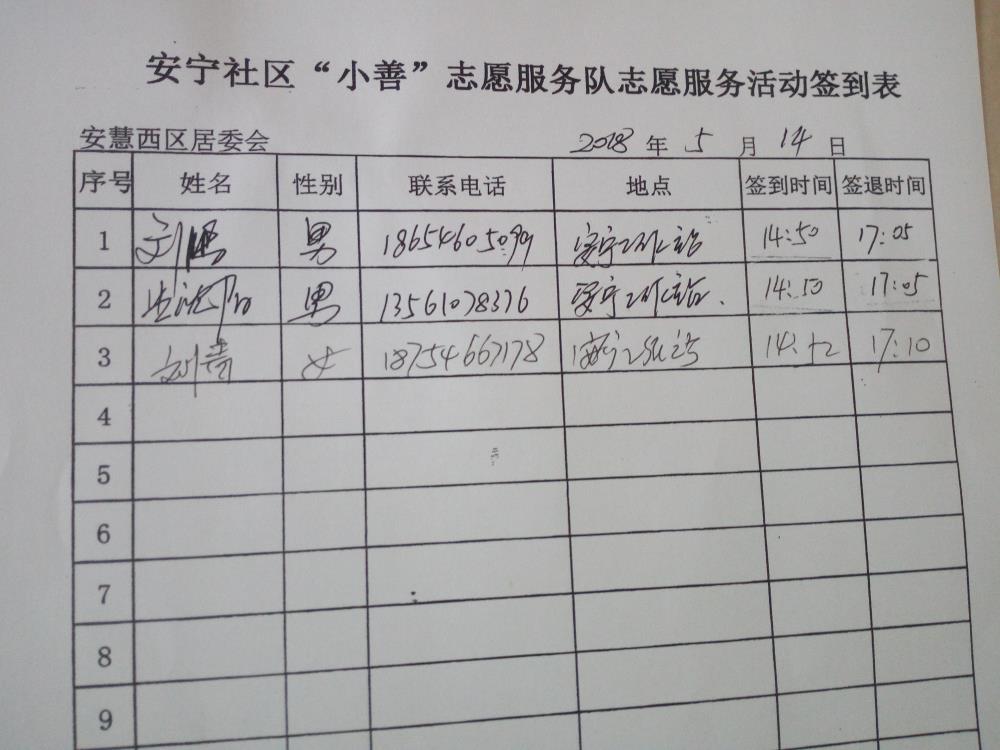 安宁社区“小善”志愿服务队志愿服务活动签到表
安慧西区居委会 2018 年 5 月 14 日
序号 姓名 性别 联系电话 地点 签到时间 签退时间
1 刘 男 18654605099 安宁工作站 14:50 17:05
2 男 13561078376 安宁工作站. 14:50 17:05
3 刘青 女 18754667178 14:52 17:10
4
5
6
7
8
9